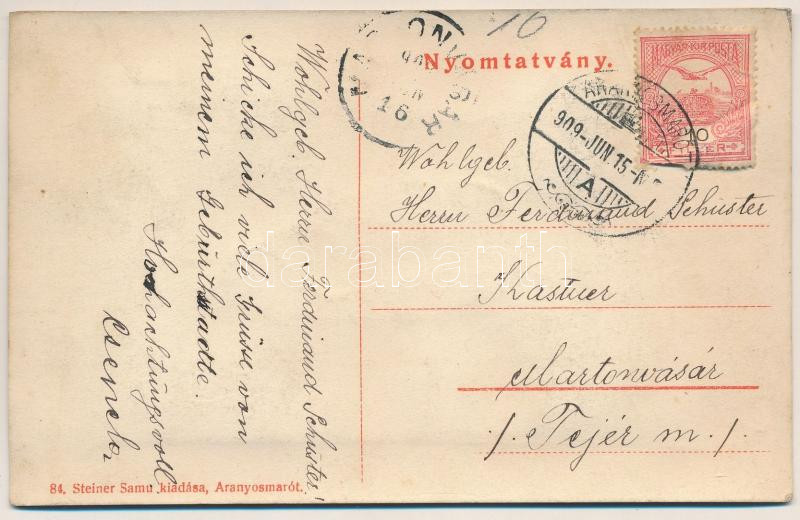 10
Nyomtatvány.
MAGYAR KIR. POSTA
ARANYOSMARÓT
909-JUN.15
A
16
Wohlgeb. Herrn Ferdinand Schuster!
Schicke ich viele Grüsse von
meinem Geburthstadte.
Hochachtungsvoll
Wohlgeb.
Herrn Ferdinand Schuster
Kastner
Martonvásár
/. Fejér m. /.
84. Steiner Samu kiadása, Aranyosmarót.
darabanth